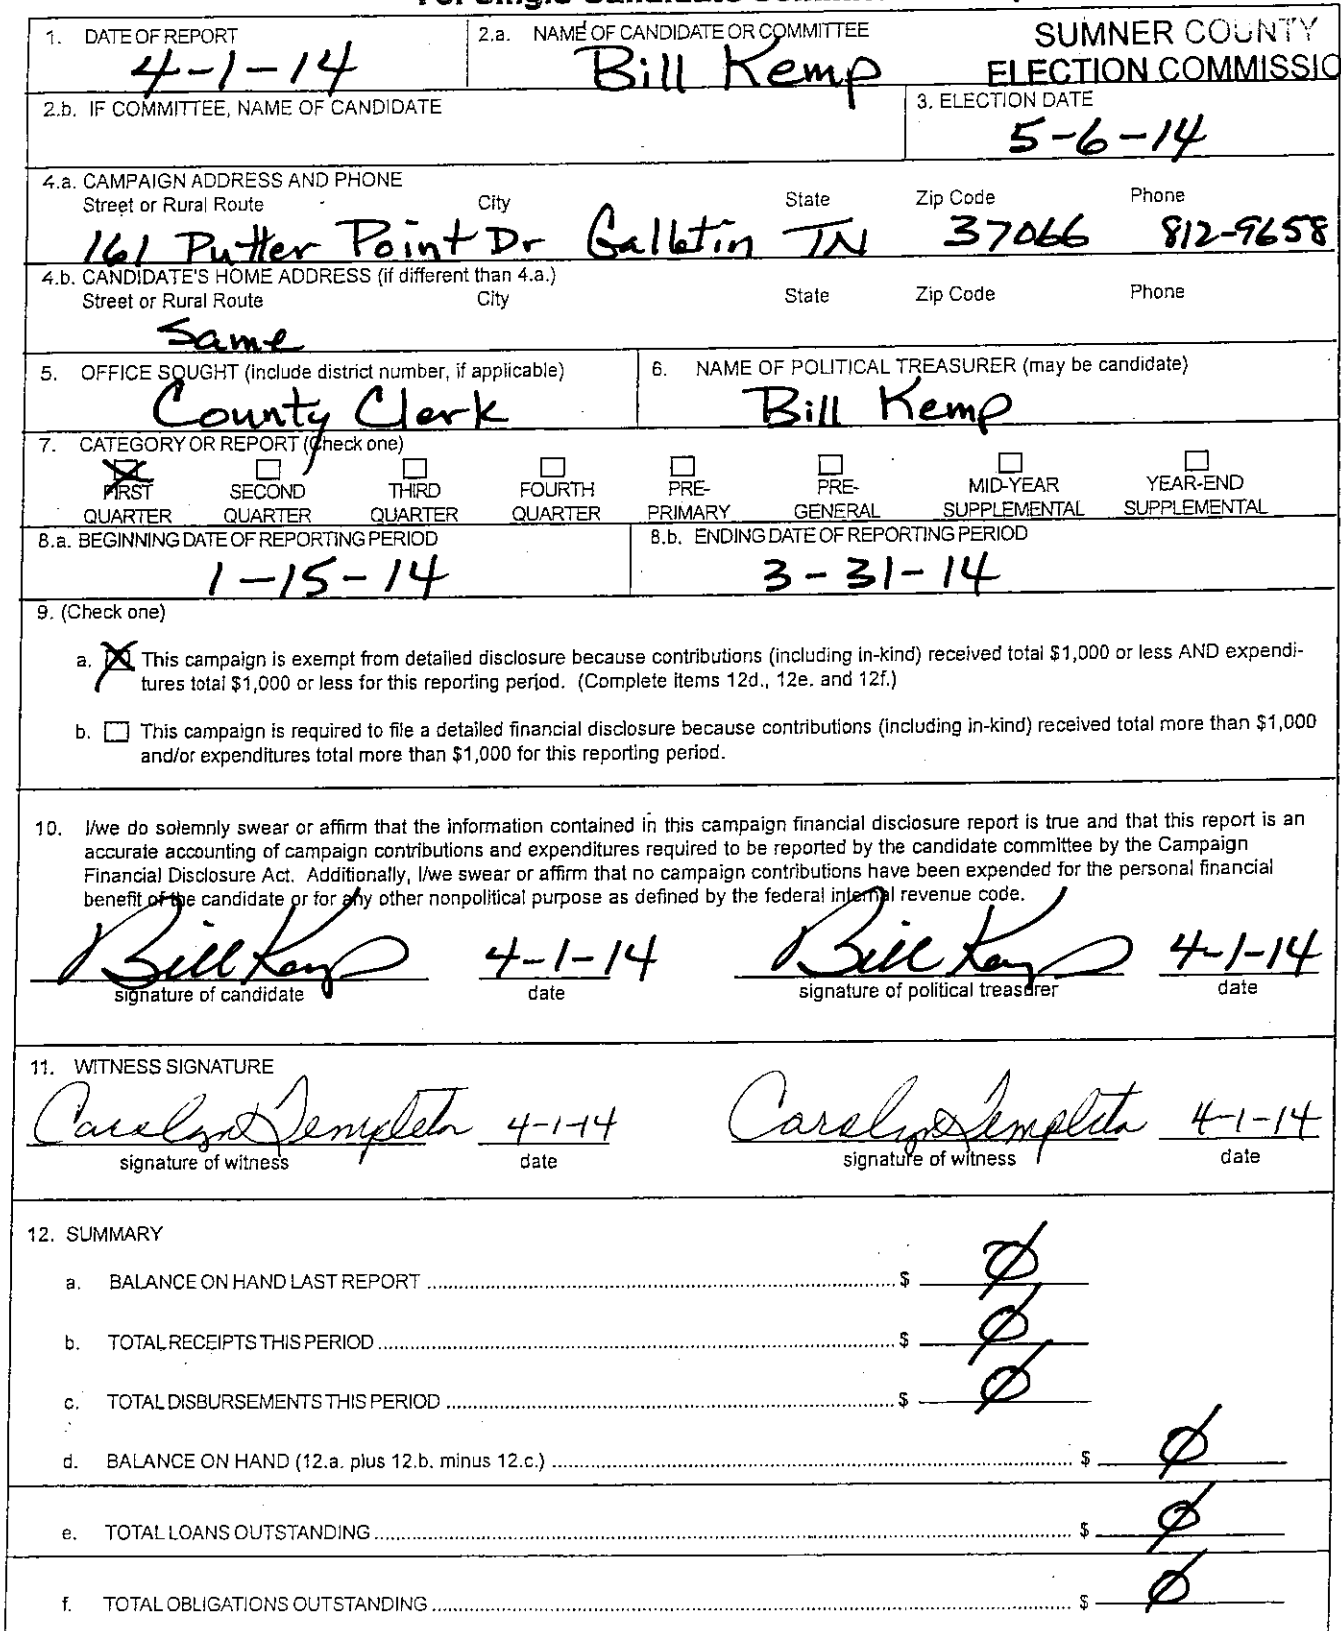 1. DATE OF REPORT
4-1-14
2.a. NAME OF CANDIDATE OR COMMITTEE
Bill Kemp
SUMNER COUNTY
ELECTION COMMISSIO
2.b. IF COMMITTEE, NAME OF CANDIDATE
3. ELECTION DATE
5-6-14
4.a. CAMPAIGN ADDRESS AND PHONE
Street or Rural Route City State Zip Code Phone
161 Putter Point Dr Gallatin TN 37066 812-9658
4.b. CANDIDATE'S HOME ADDRESS (if different than 4.a.)
Street or Rural Route City State Zip Code Phone
Same
5. OFFICE SOUGHT (include district number, if applicable)
County Clerk
6. NAME OF POLITICAL TREASURER (may be candidate)
Bill Kemp
7. CATEGORY OR REPORT (Check one)
FIRST QUARTER
SECOND QUARTER
THIRD QUARTER
FOURTH QUARTER
PRE-PRIMARY
PRE-GENERAL
MID-YEAR SUPPLEMENTAL
YEAR-END SUPPLEMENTAL
8.a. BEGINNING DATE OF REPORTING PERIOD
1-15-14
8.b. ENDING DATE OF REPORTING PERIOD
3-31-14
9. (Check one)
a. This campaign is exempt from detailed disclosure because contributions (including in-kind) received total $1,000 or less AND expendi-
tures total $1,000 or less for this reporting period. (Complete items 12d., 12e. and 12f.)
b. This campaign is required to file a detailed financial disclosure because contributions (including in-kind) received total more than $1,000
and/or expenditures total more than $1,000 for this reporting period.
10. I/we do solemnly swear or affirm that the information contained in this campaign financial disclosure report is true and that this report is an
accurate accounting of campaign contributions and expenditures required to be reported by the candidate committee by the Campaign
Financial Disclosure Act. Additionally, I/we swear or affirm that no campaign contributions have been expended for the personal financial
benefit of the candidate or for any other nonpolitical purpose as defined by the federal internal revenue code.
Bill Kemp 4-1-14 Bill Kemp 4-1-14
signature of candidate date signature of political treasurer date
11. WITNESS SIGNATURE
Carolyn Templeton 4-1-14 Carolyn Templeton 4-1-14
signature of witness date signature of witness date
12. SUMMARY
a. BALANCE ON HAND LAST REPORT $ Ø
b. TOTAL RECEIPTS THIS PERIOD $ Ø
c. TOTAL DISBURSEMENTS THIS PERIOD $ Ø
d. BALANCE ON HAND (12.a. plus 12.b. minus 12.c.) $ Ø
e. TOTAL LOANS OUTSTANDING $ Ø
f. TOTAL OBLIGATIONS OUTSTANDING $ Ø